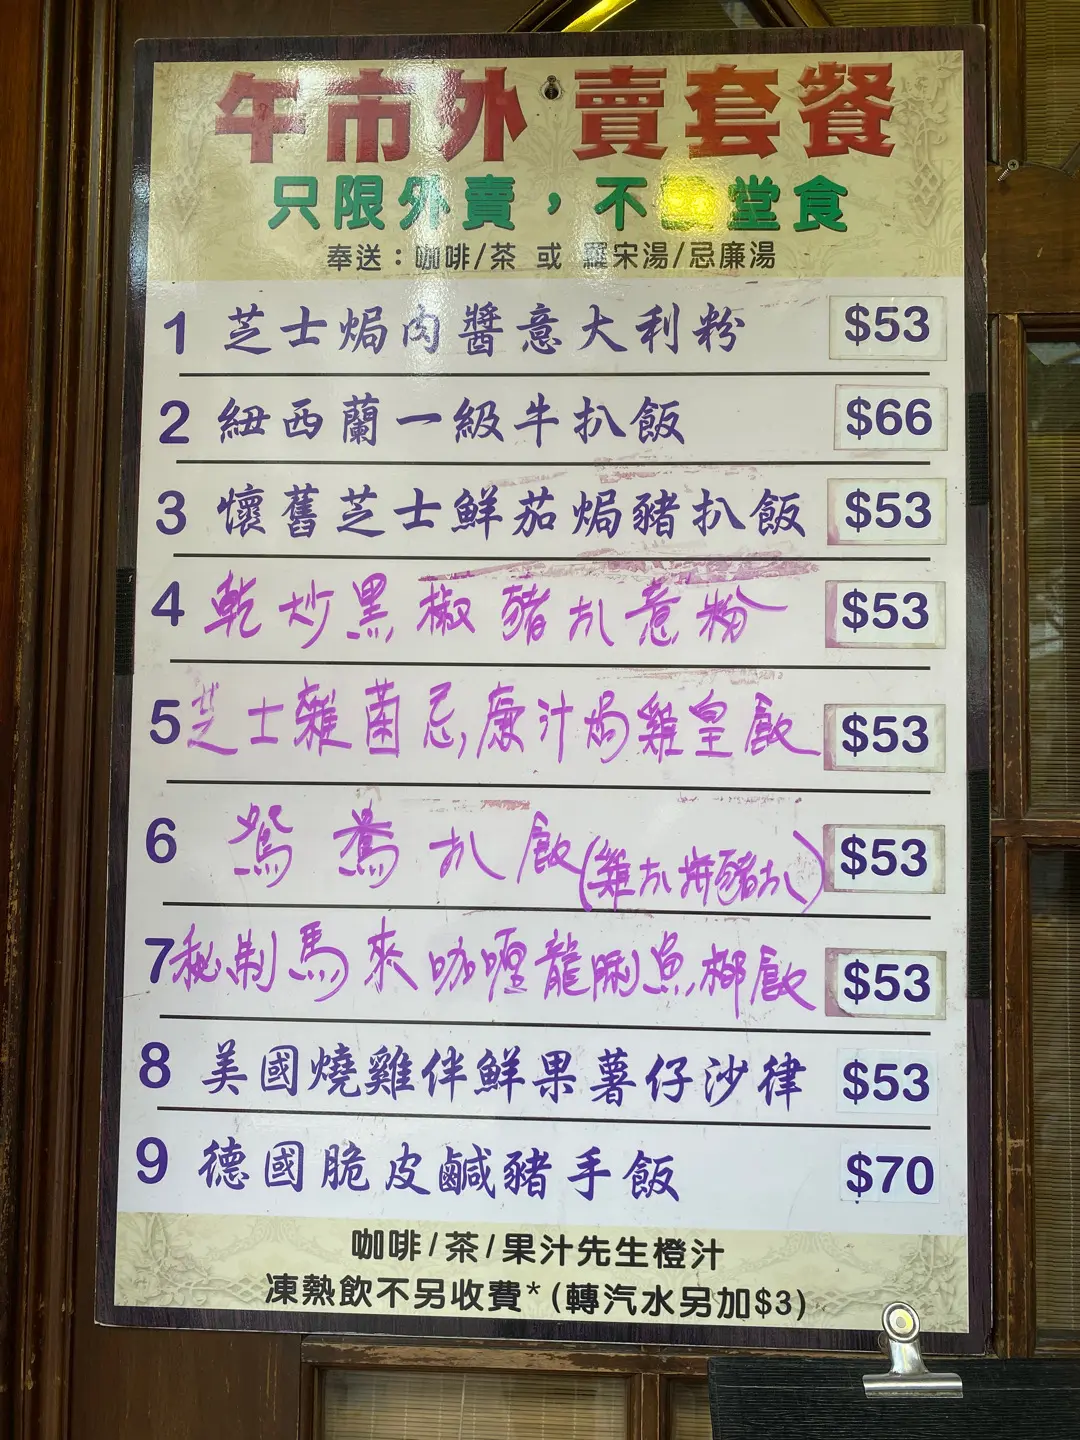 午市外賣套餐
只限外賣，不設堂食
奉送：咖啡/茶 或 羅宋湯/忌廉湯
1 芝士焗肉醬意大利粉 $53
2 紐西蘭一級牛扒飯 $66
3 懷舊芝士鮮茄焗豬扒飯 $53
4 乾炒黑椒豬扒意粉 $53
5 芝士雜菌忌廉汁焗雞皇飯 $53
6 鴛鴦扒飯(雞扒拼豬扒) $53
7 秘制馬來咖喱龍脷魚柳飯 $53
8 美國燒雞伴鮮果薯仔沙律 $53
9 德國脆皮鹹豬手飯 $70
咖啡/茶/果汁先生橙汁
凍熱飲不另收費*(轉汽水另加$3)